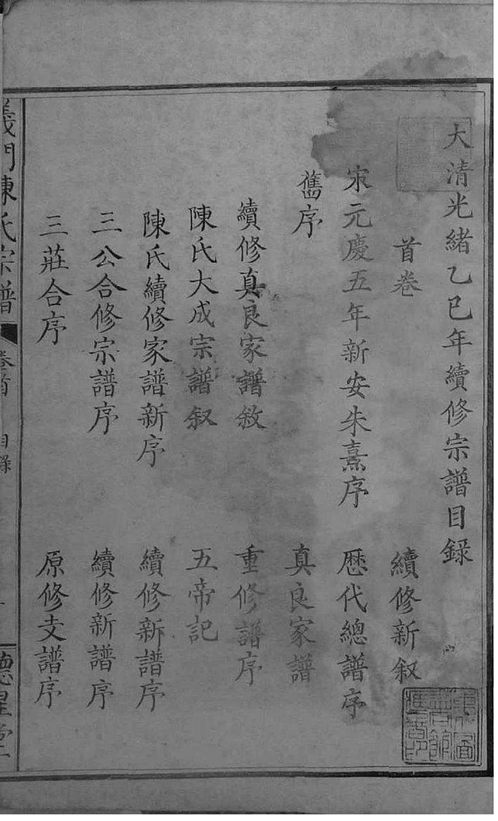 大清光緒乙巳年續修宗譜目錄
首卷 續修新叙
宋元慶五年新安朱熹序 歷代總譜序
舊序 真良家譜
續修真良家譜敘 重修譜序
陳氏大成宗譜叙 五帝記
陳氏續修家譜新序 續修新譜序
三公合修宗譜序 續修新譜序
三莊合序 原修支譜序
義門陳氏宗譜 卷首 目錄 德星堂